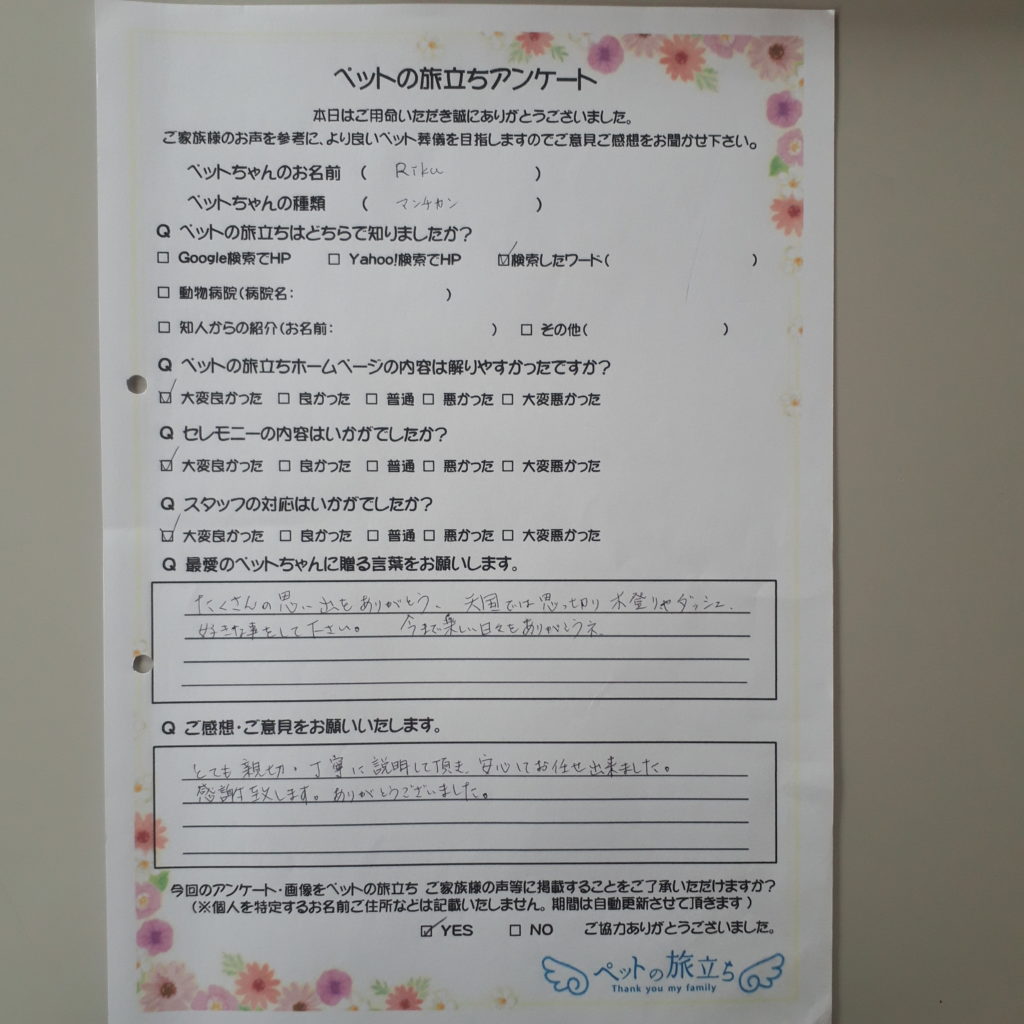 ペットの旅立ちアンケート
本日はご用命いただき誠にありがとうございました。
ご家族様のお声を参考に、より良いペット葬儀を目指しますのでご意見ご感想をお聞かせ下さい。
ペットちゃんのお名前 ( Riku )
ペットちゃんの種類 ( マンチカン )
Q ペットの旅立ちはどちらで知りましたか?
□ Google検索でHP □ Yahoo!検索でHP ☑検索したワード( )
□ 動物病院(病院名: )
□ 知人からの紹介(お名前: ) □ その他( )
Q ペットの旅立ちホームページの内容は解りやすかったですか?
☑ 大変良かった □ 良かった □ 普通 □ 悪かった □ 大変悪かった
Q セレモニーの内容はいかがでしたか?
☑ 大変良かった □ 良かった □ 普通 □ 悪かった □ 大変悪かった
Q スタッフの対応はいかがでしたか?
☑ 大変良かった □ 良かった □ 普通 □ 悪かった □ 大変悪かった
Q 最愛のペットちゃんに贈る言葉をお願いします。
たくさんの思い出をありがとう、天国では思っ切り木登りやダッシュ、
好きな事をして下さい。 今まで楽しい日々をありがとうネ
Q ご感想・ご意見をお願いいたします。
とても親切・丁寧に説明して頂き、安心してお任せ出来ました。
感謝致します。ありがとうございました。
今回のアンケート・画像をペットの旅立ち ご家族様の声等に掲載することをご了承いただけますか?
(※個人を特定するお名前ご住所などは記載いたしません。期間は自動更新させて頂きます)
☑ YES □ NO ご協力ありがとうございました。
ペットの旅立ち
Thank you my family